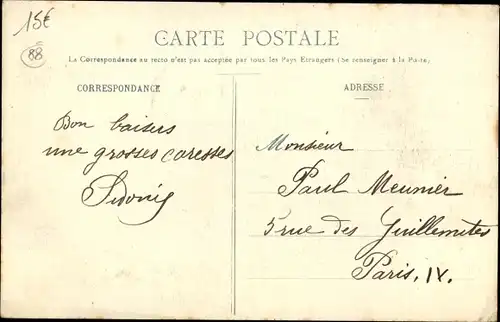 15€
88
CARTE POSTALE
La Correspondance au recto n'est pas acceptée par tous les Pays Etrangers (Se renseigner à la Poste)
CORRESPONDANCE
Bon baisers
une grosses caresses
Sidonie
ADRESSE
Monsieur
Paul Meunier
5 rue des Guillemites
Paris. IV.